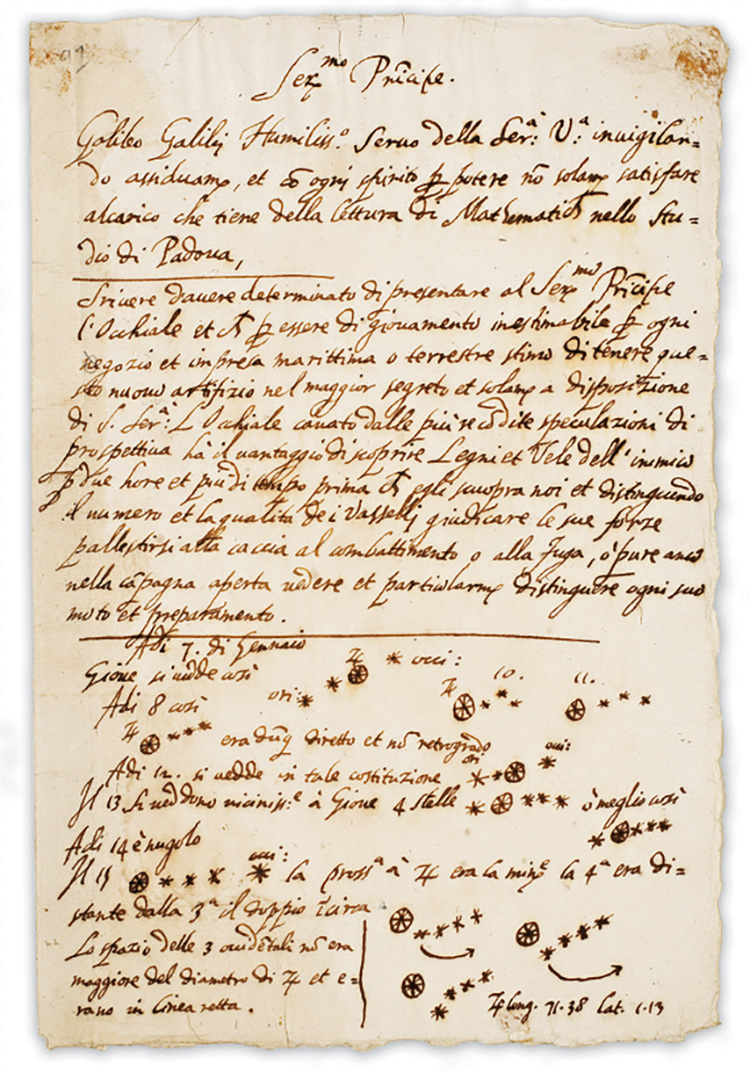 Ser.mo Prīcipe.
Galileo Galilej Humiliss.o Servo della Ser.a V.a invigilan=
do assiduam.e, et cō ogni spirito p potere nō solam.e satisfare
al carico che tiene della lettura di Mathematica nello Stu=
dio di Padova,
Scrivere d'avere determinato di presentare al Ser.mo Prīcipe
l'Occhiale et p essere di giovamento inestimabile p ogni
negozio et impresa marittima o terrestre stimo di tenere que=
sto nuovo artifizio nel maggior segreto et solam.e a disposizione
di S. Ser.a L'Occhiale cavato dalle più recōdite speculazioni di
prospettiva ha il vantaggio di scoprire Legni et Vele dell'inimico
p due hore et più di tempo prima egli scuopra noi et distinguendo
il numero et la qualità dei Vasselli giudicare le sue forze
pallestirsi alla caccia al combattimento o alla fuga, o pure anco
nella cāpagna aperta vedere et particularm.e distinguere ogni suo
moto et preparamento.
Adi 7. di Gennaio
Giove si vedde così ♃ occi:
Adi 8 così ori: ♃ 10. 11.
♃ era dūq diretto et nō retrogrado
Adi 12. si vedde in tale costituzione ori occi:
Il 13 si veddono viciniss.e à Giove 4 stelle ò meglio così
Adi 14 è nugolo
Il 15 occi: la pross.a à ♃ era la min.e la 4.a era di=
stante dalla 3.a il doppio īcirca
Lo spazio delle 3 occidētali nō era
maggiore del diametro di ♃ et e=
rano in linea retta.
♃ long. 71.38 lat. 1.13